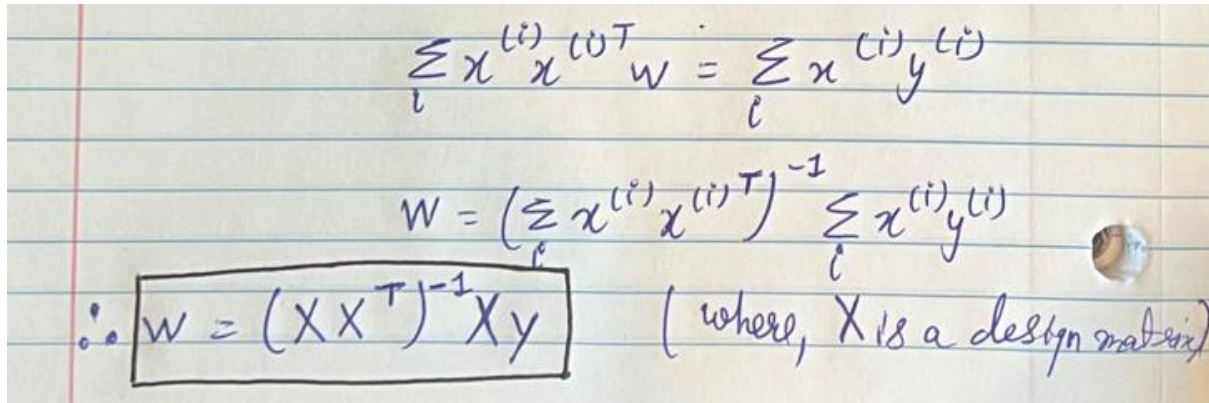 ∑_i x^(i) x^(i)T w = ∑_i x^(i) y^(i)
w = (∑_i x^(i) x^(i)T)^-1 ∑_i x^(i) y^(i)
∴ w = (XX^T)^-1 Xy (where, X is a design matrix)